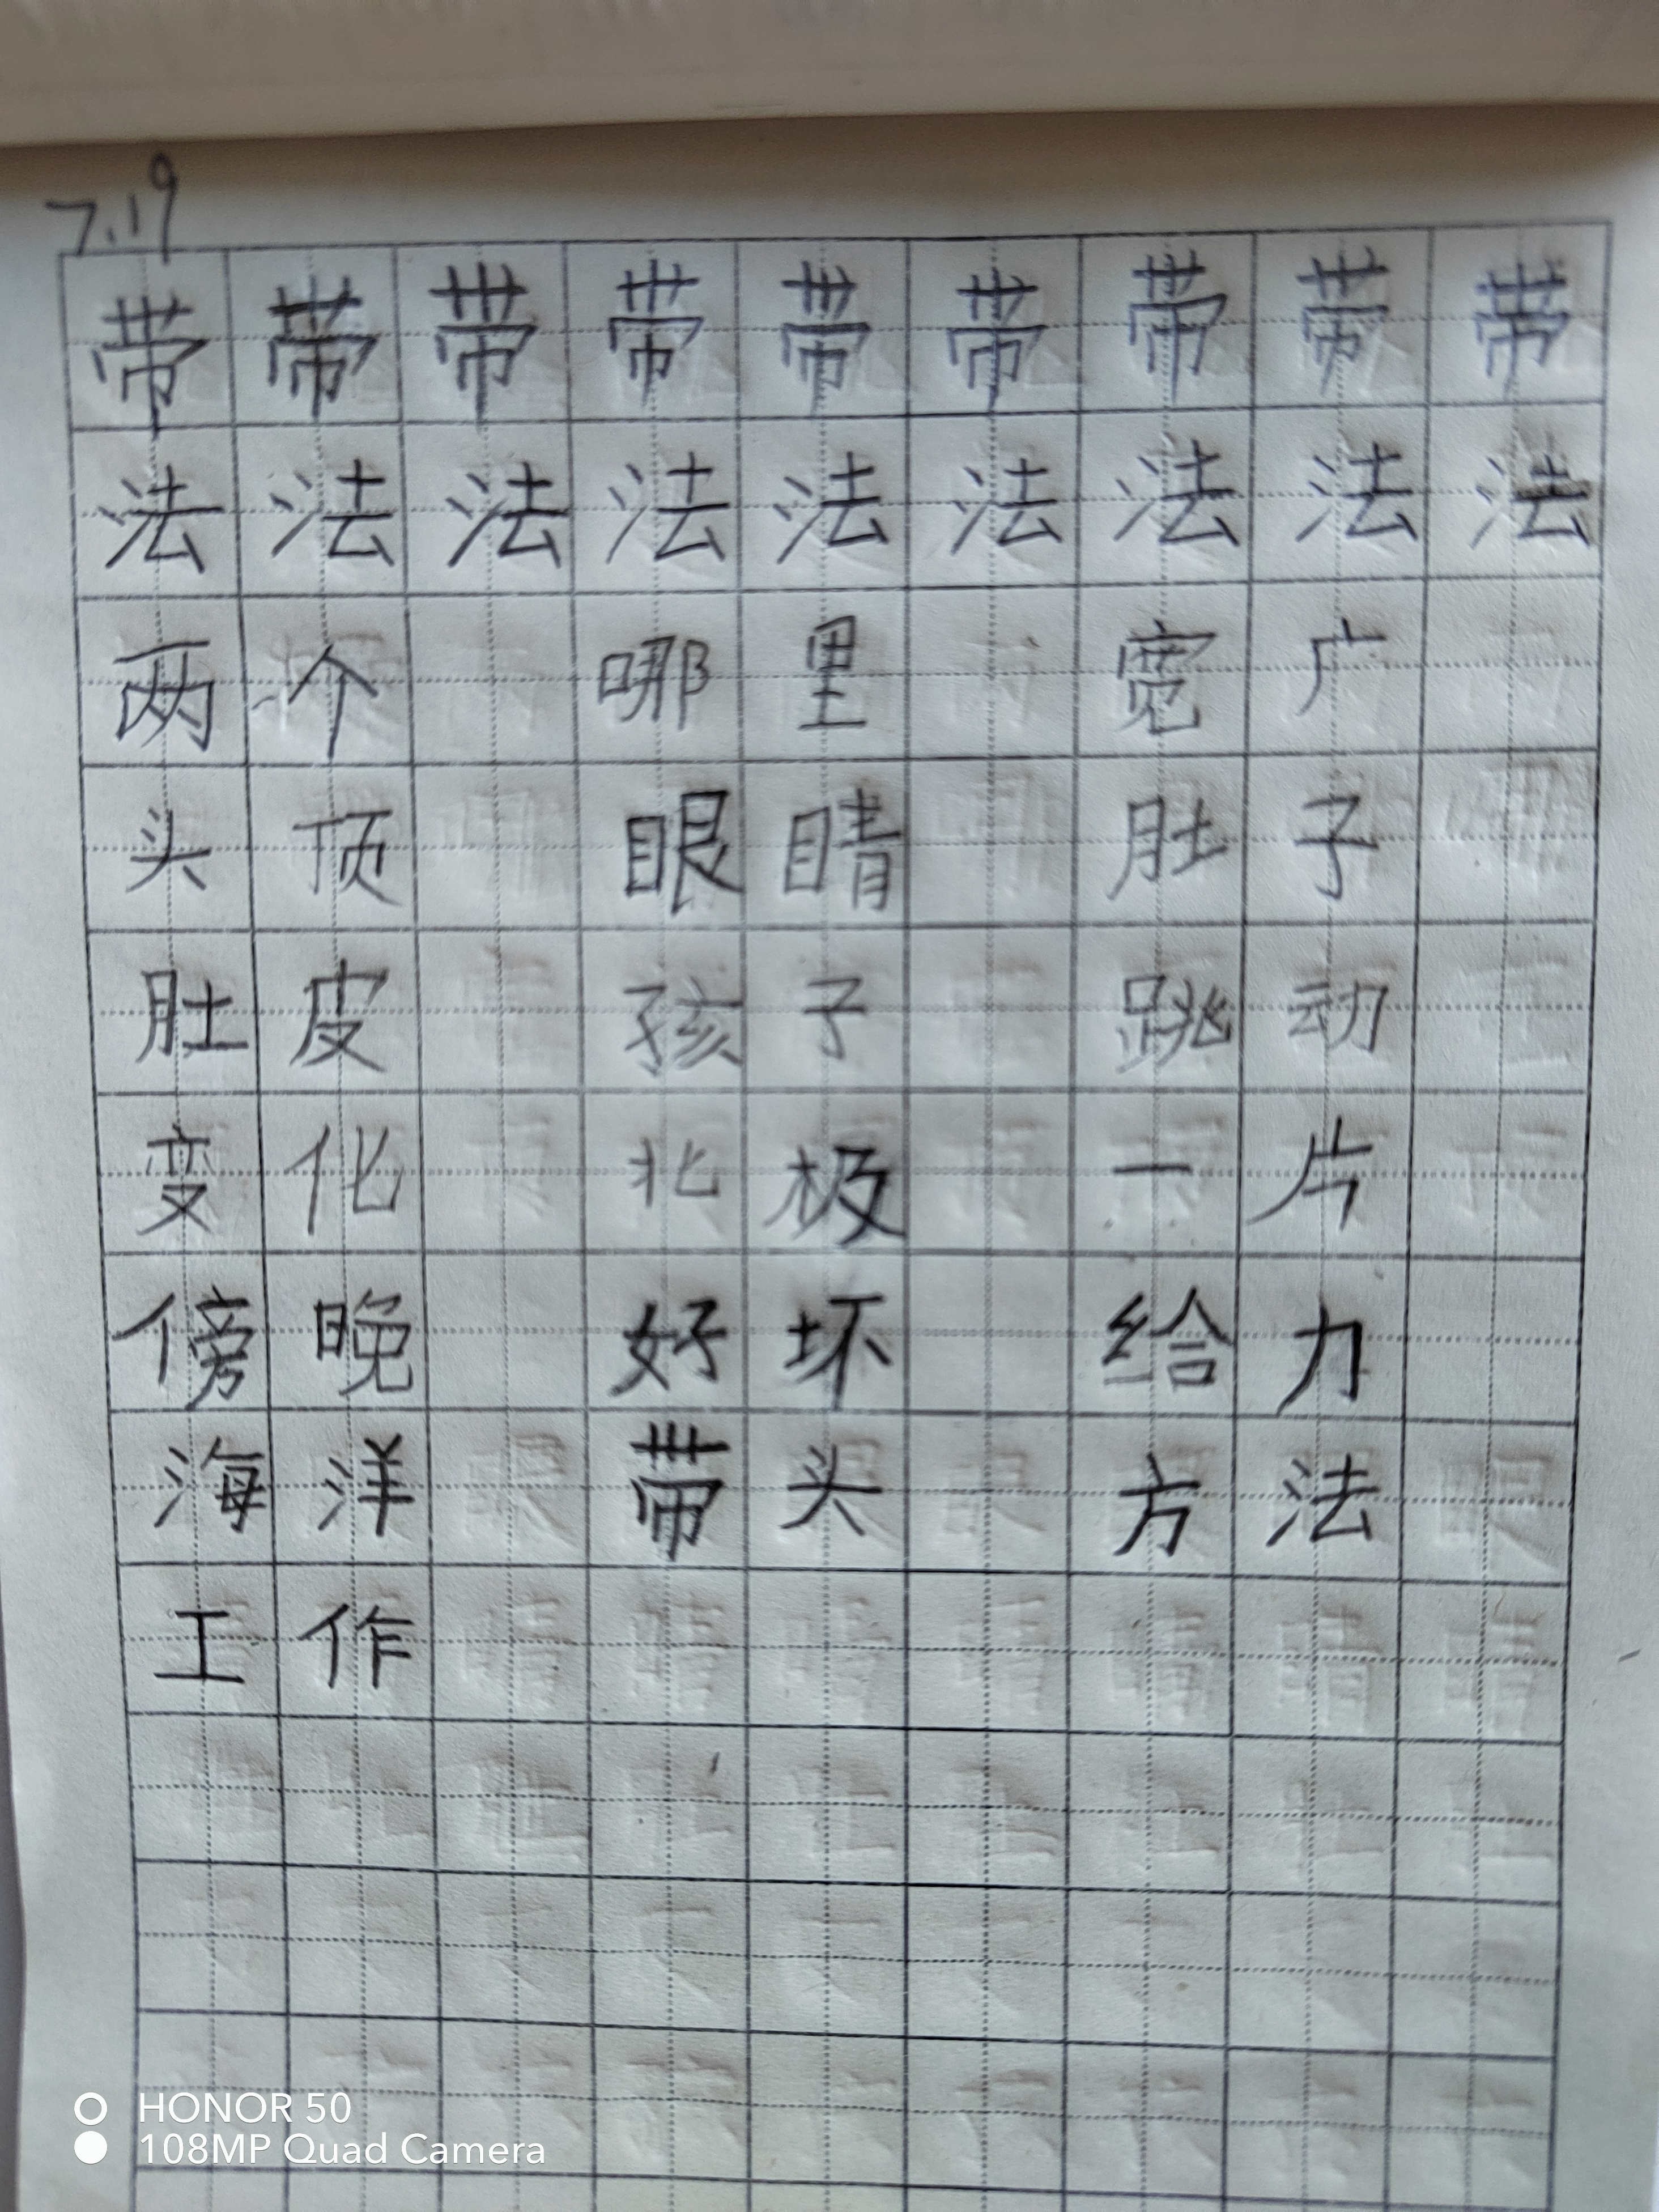 7.19
带 带 带 带 带 带 带 带 带
法 法 法 法 法 法 法 法 法
两个 哪里 宽广
头顶 眼睛 肚子
肚皮 孩子 跳动
变化 北极 一片
傍晚 好坏 给力
海洋 带头 方法
工作
HONOR 50
108MP Quad Camera